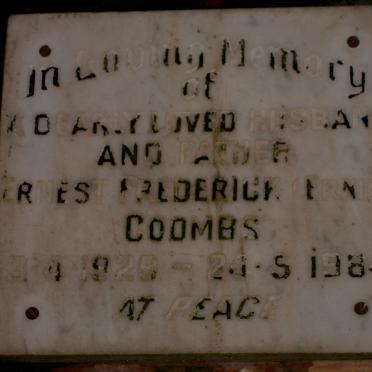 In Loving Memory
of
A DEARLY LOVED HUSBAND
AND FATHER
ERNEST FREDERICK
COOMBS
1929 - 24·5·198
AT PEACE